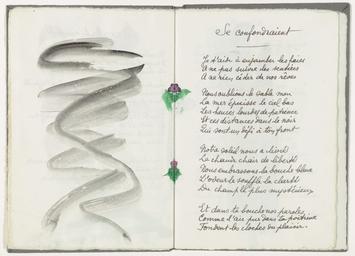 Se confondraient
Je t'aide à enjamber les haies
A ne pas suivre les sentiers
A ne rien céder de nos rêves
Nous oublions le sable mou
La mer épaisse le ciel bas
Les heures lourdes de patience
Et ces distances dans le noir
Qui sont un défi à ton front
Notre soleil nous a livré
La chaude chair de liberté
Nous embrassons la bouche bleue
L'odeur le souffle la clarté
Du champ le plus mystérieux
Et dans ta bouche nos paroles
Comme l'air pur dans la poitrine
Fondent les cloches du plaisir.